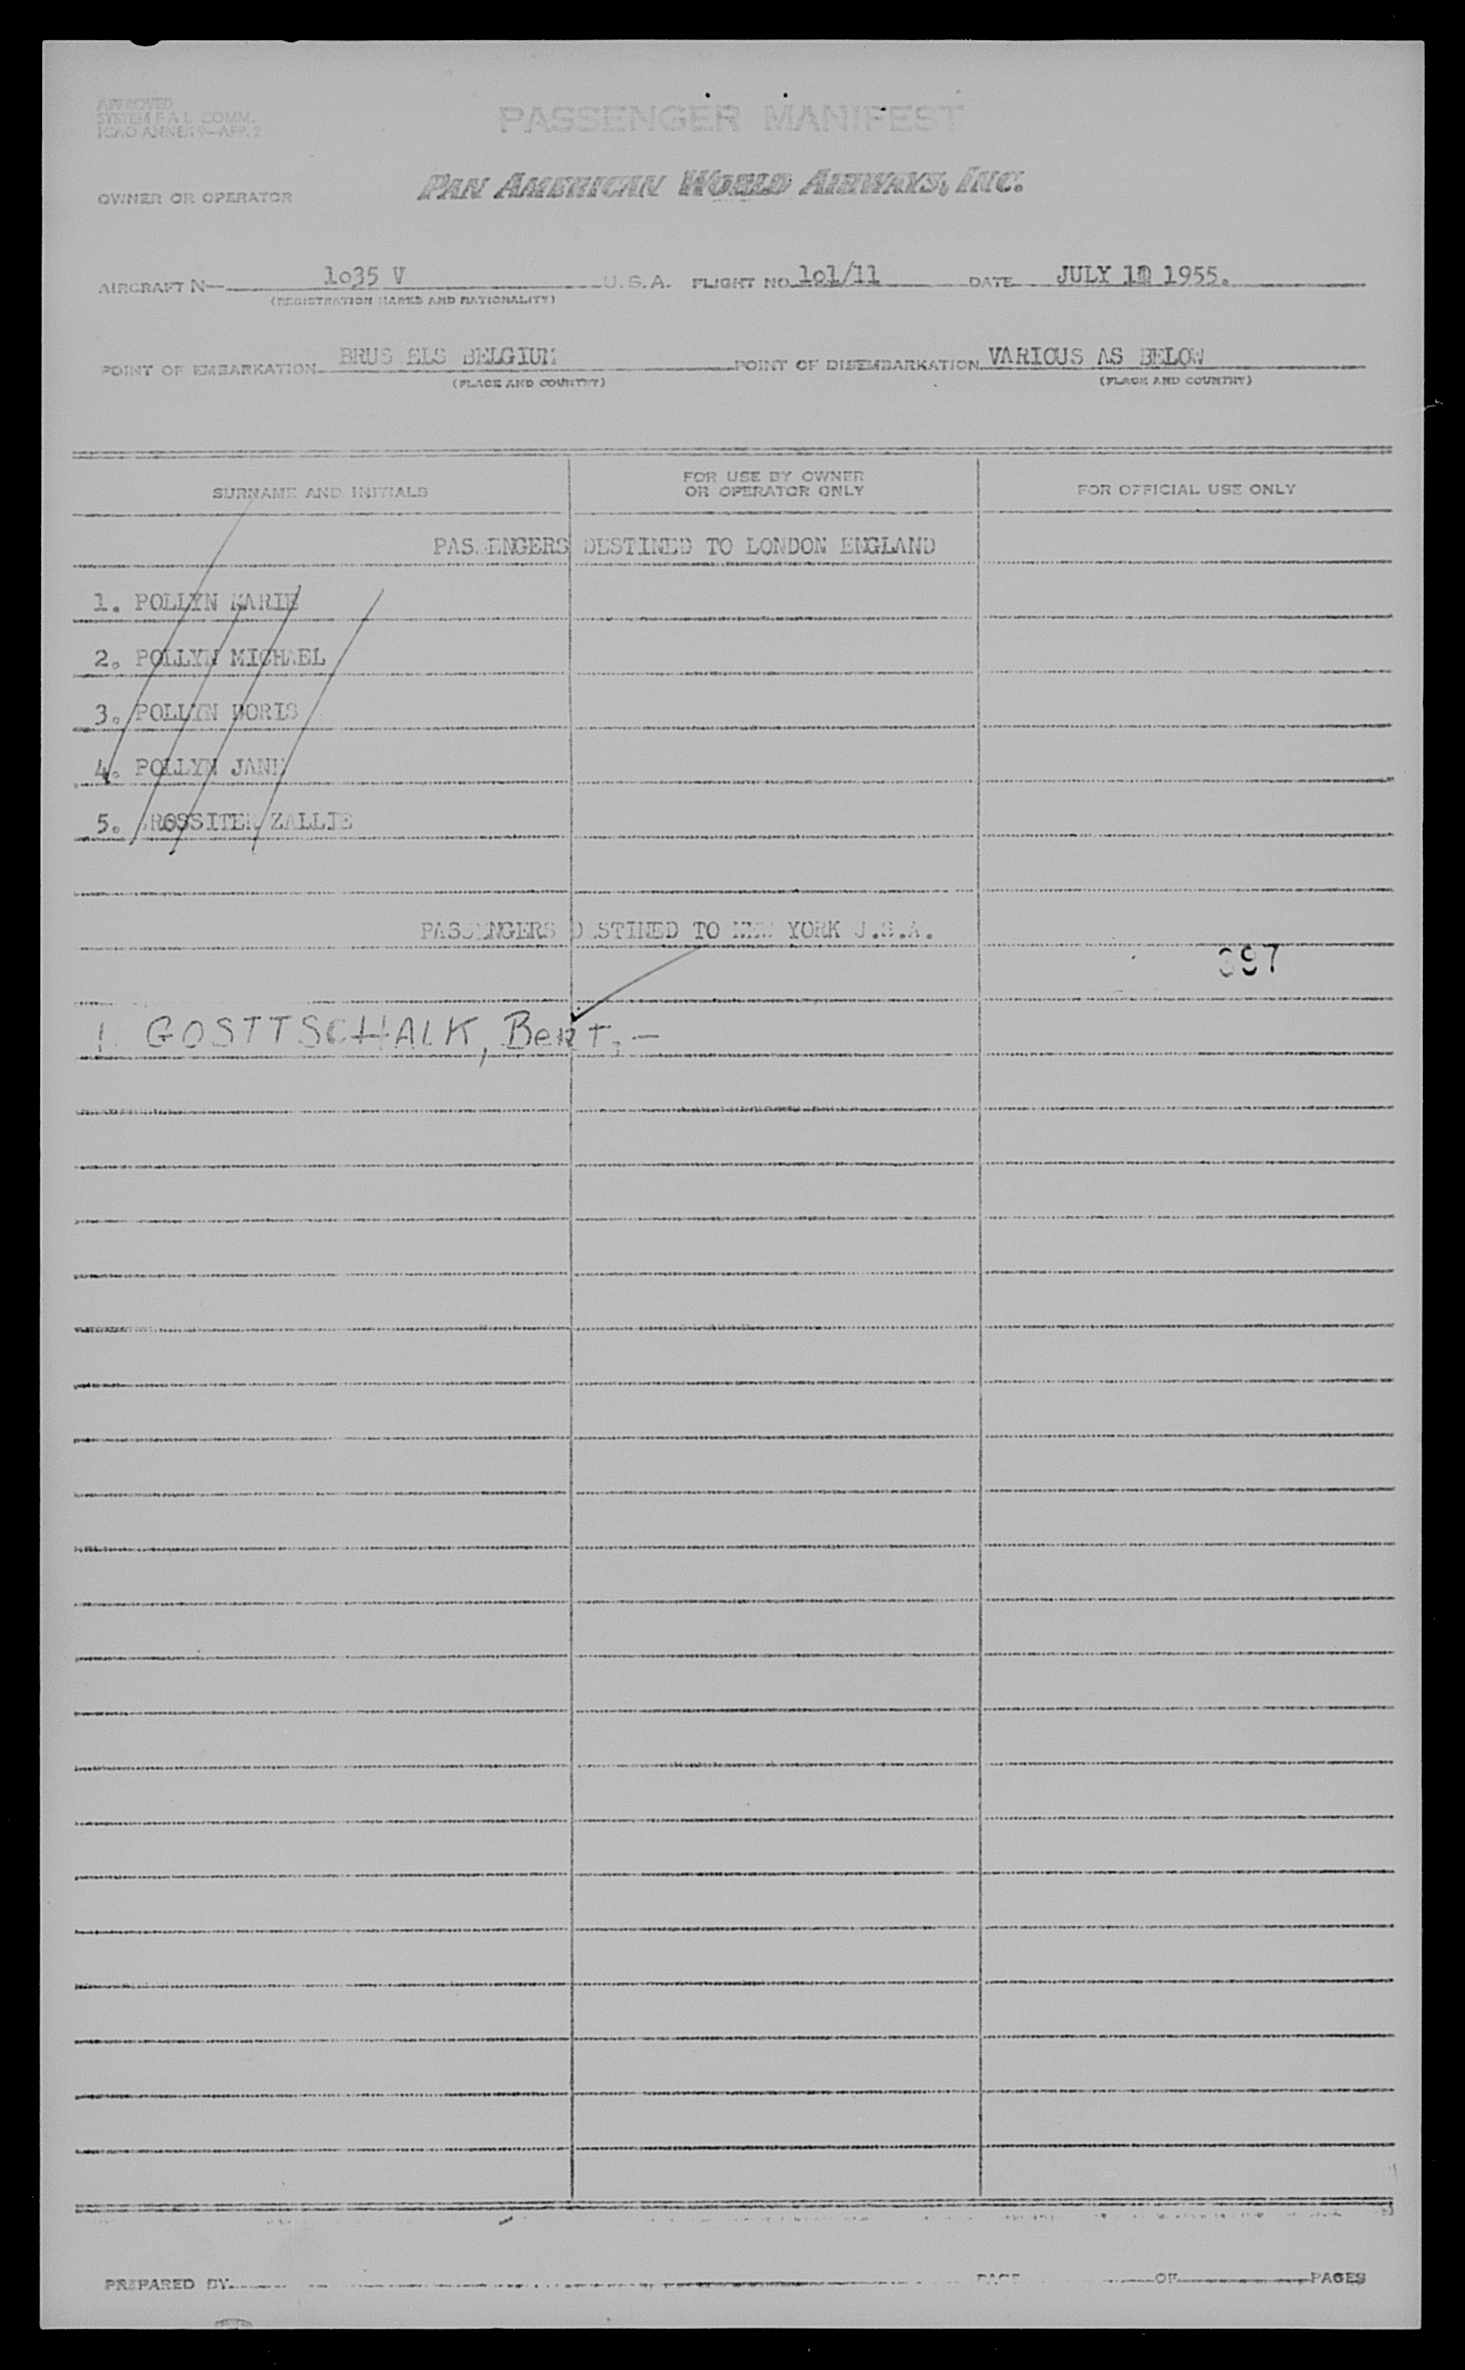 APPROVED
SYSTEM F A L COMM.
ICAO ANNEX 9—APP. 2
PASSENGER MANIFEST
OWNER OR OPERATOR
PAN AMERICAN WORLD AIRWAYS, INC.
AIRCRAFT N— 1o35 V U.S.A. FLIGHT NO. 1o1/11 DATE JULY 1 1955.
(REGISTRATION MARKS AND NATIONALITY)
POINT OF EMBARKATION BRUS ELS BELGIUM POINT OF DISEMBARKATION VARIOUS AS BELOW
(PLACE AND COUNTRY) (PLACE AND COUNTRY)
SURNAME AND INITIALS FOR USE BY OWNER OR OPERATOR ONLY FOR OFFICIAL USE ONLY
PASSENGERS DESTINED TO LONDON ENGLAND
1. POLLYN MARIE
2. POLLYN MICHAEL
3. POLLYN DORIS
4. POLLYN JANE
5. ROSSITER ZALLIE
PASSENGERS DESTINED TO NEW YORK U.S.A.
397
1. GOSTTSCHALK, Bert, —
PREPARED BY PAGE OF PAGES